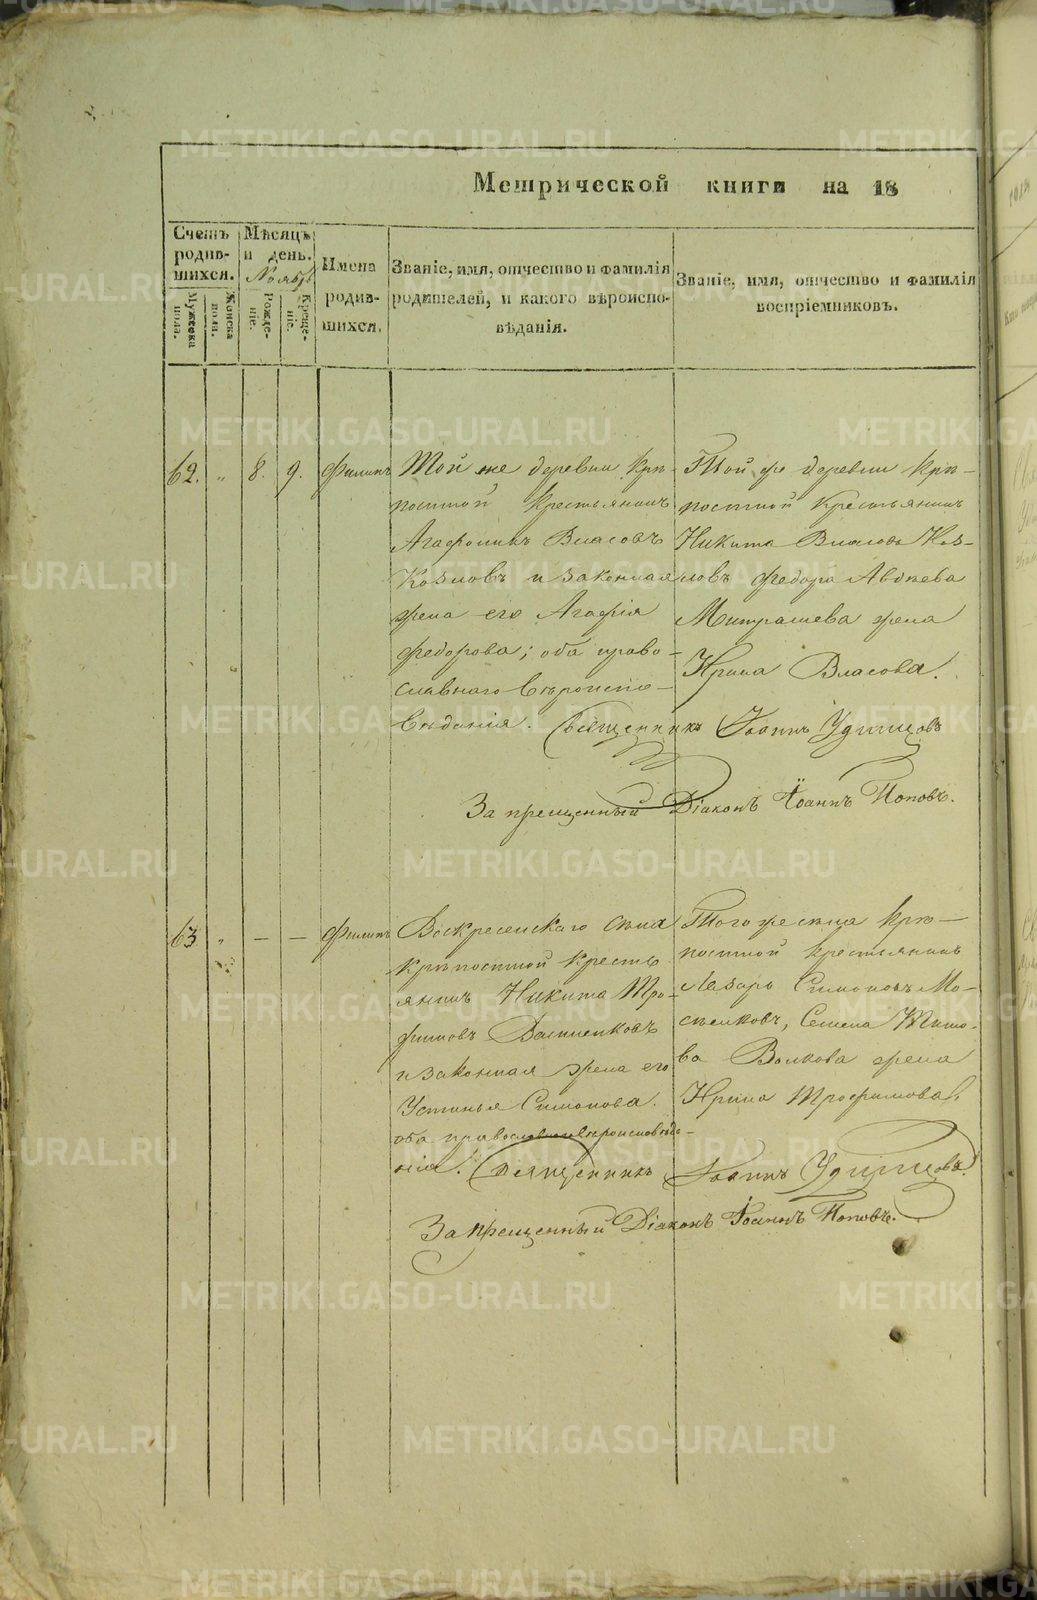 Метрической книги на 18
Счетъ родив-шихся.
Мужеска пола.
Женска пола.
Мѣсяцъ и день.
Ноябрь
Рожде-ніе.
Креще-ніе.
Имена родив-шихся.
Званіе, имя, отчество и фамилія родителей, и какого вѣроиспо-вѣданія.
Званіе, имя, отчество и фамилія воспріемниковъ.
62. " 8. 9. Филипъ
Той же деревни крѣ-
постной крестьянинъ
Агафоникъ Власовъ
Козловъ и законная
жена его Агафія
Федорова; оба право-
славнаго вѣроиспо-
вѣданія.
Той же деревни крѣ-
постной крестьянинъ
Никита Власовъ Коз-
ловъ Федора Авдѣева
Митрашева жена
Ирина Власова.
Священникъ Іоаннъ Удинцовъ
Запрещенный Діаконъ Іоаннъ Поповъ.
63 " — — Филипъ
Воскресенскаго села
крѣпостной кресть
янинъ Никита Тро-
фимовъ Василенковъ
и законная жена его
Устинья Симонова.
оба православнаго вѣроисповѣда-
нія.
Того же села крѣ—
постной крестьянинъ
Лазарь Симоновъ Мо-
сѣлковъ, Семена Тито-
ва Волкова жена
Ирина Трофимова.
Священникъ Іоаннъ Удинцовъ.
Запрещенный Діаконъ Іоаннъ Поповъ.
METRIKI.GASO-URAL.RU